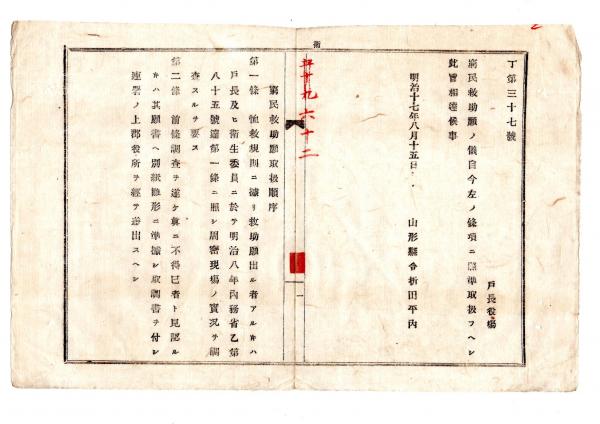 丁第三十七號
戸長役場
窮民救助願ノ儀自今左ノ條項ニ照準取扱フヘシ
此旨相達候事
明治十七年八月十五日
山形縣令折田平内
六十二
一
窮民救助願取扱順序
第一條 恤救規則ニ據リ救助願出ル者アルキハ
戸長及ヒ衛生委員ニ於テ明治八年内務省乙第
八十五號達第一條ニ照シ周密現場ノ實况ヲ調
査スルヲ要ス
第二條 前條調査ヲ遂ケ眞ニ不得已者ト見認ル
キハ其願書ヘ別紙雛形ニ準據シ取調書ヲ付シ
連署ノ上郡役所ヲ經テ差出スヘシ